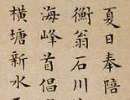 夏日奉陪
衡翁石川
海峰首倡
橫塘新水